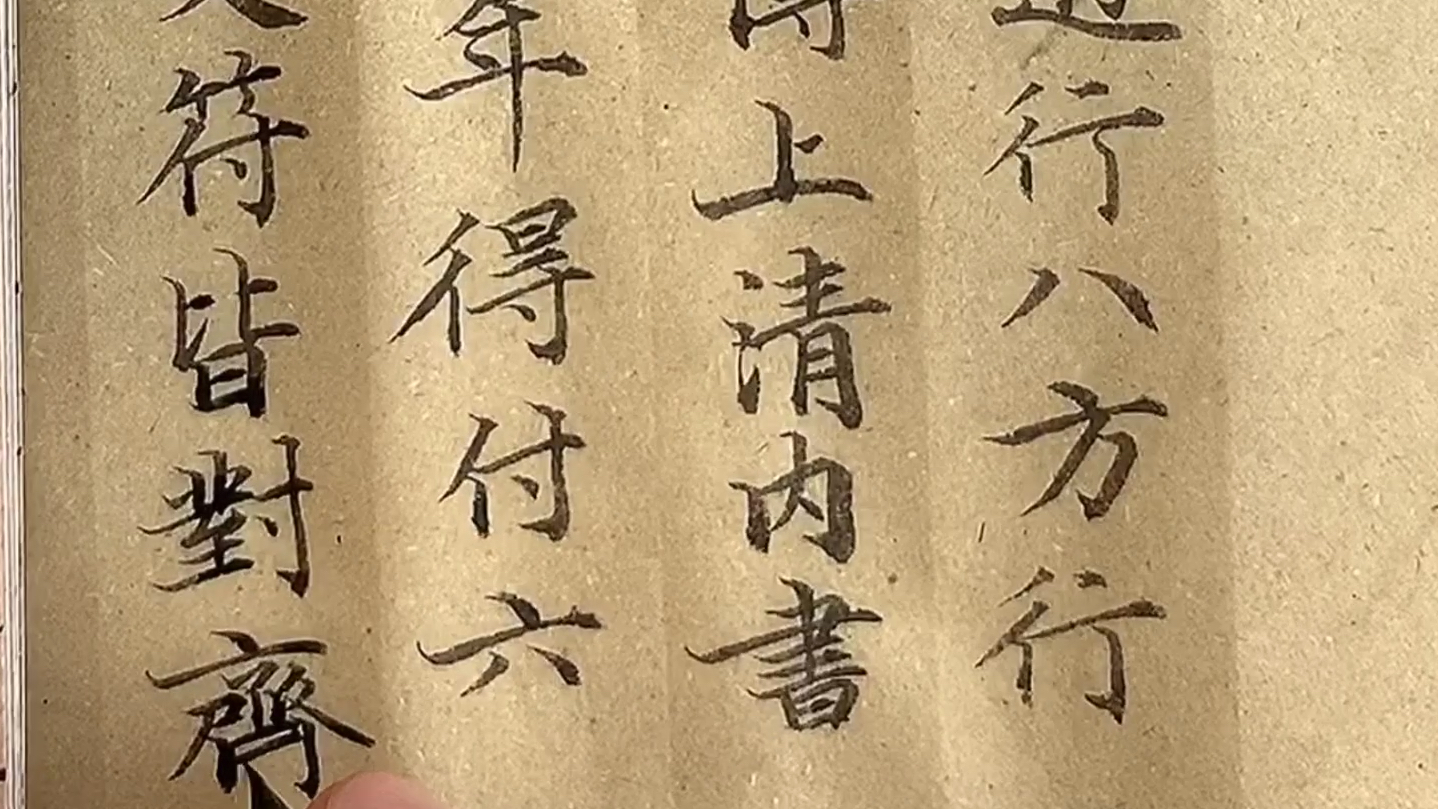 行八方行
上清內書
年得付六
符皆對齊